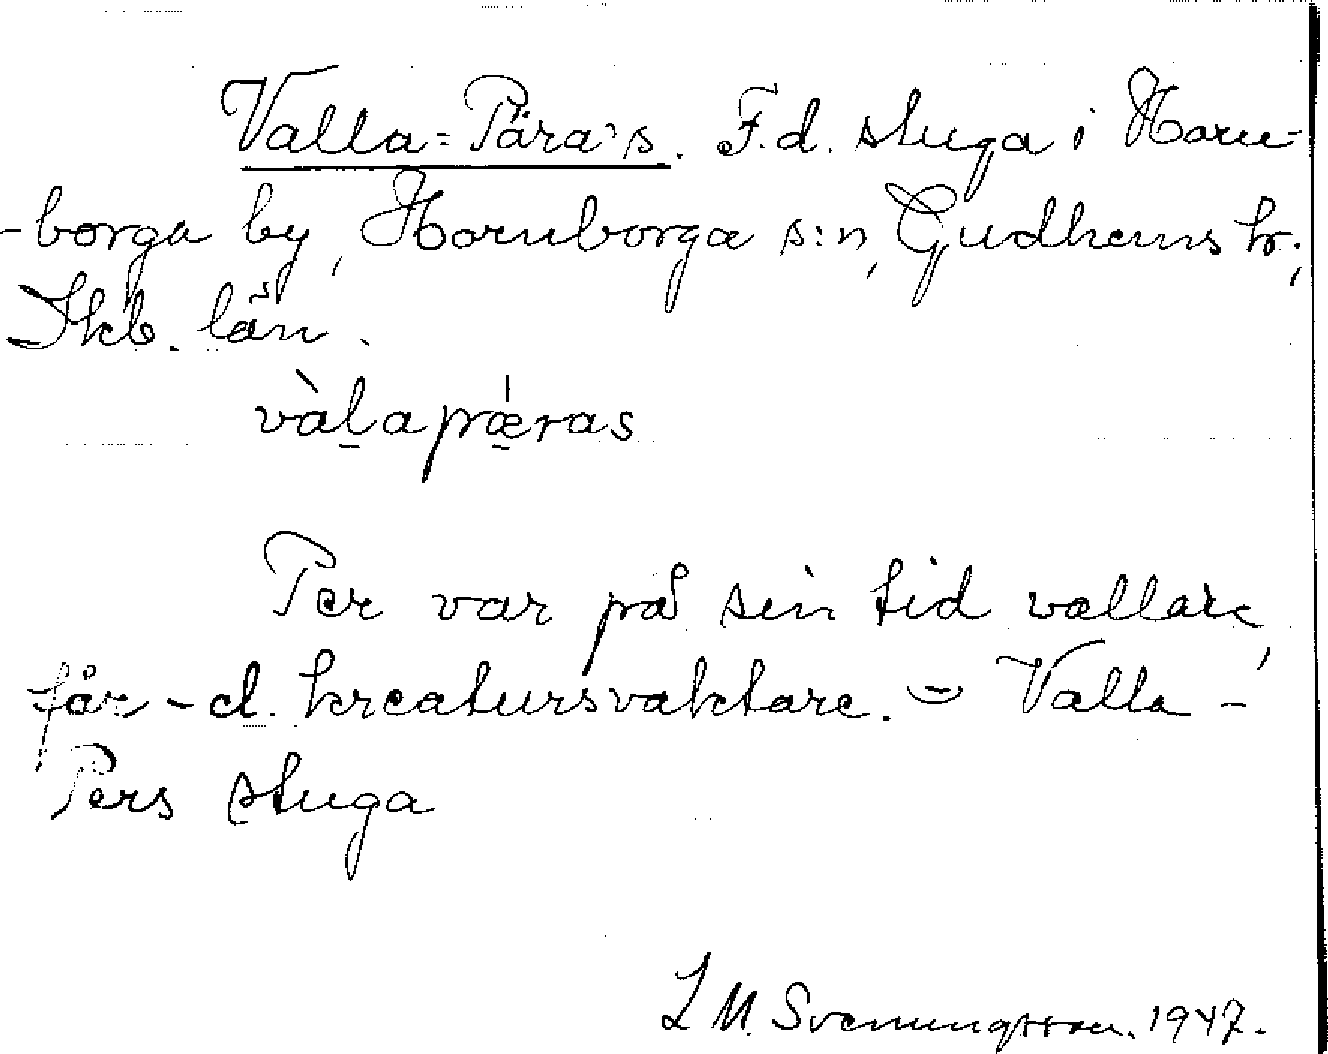 Valla-Pära's. F.d. stuga i Horn-
-borga by, Hornborga s:n, Gudhems hr,
Skb. län.
vàl̠apǽ̠ras
Per var på sin tid vallare,
får- d. kreatursvaktare. = Valla-
Pers stuga
L M. Svenungsson. 1947.